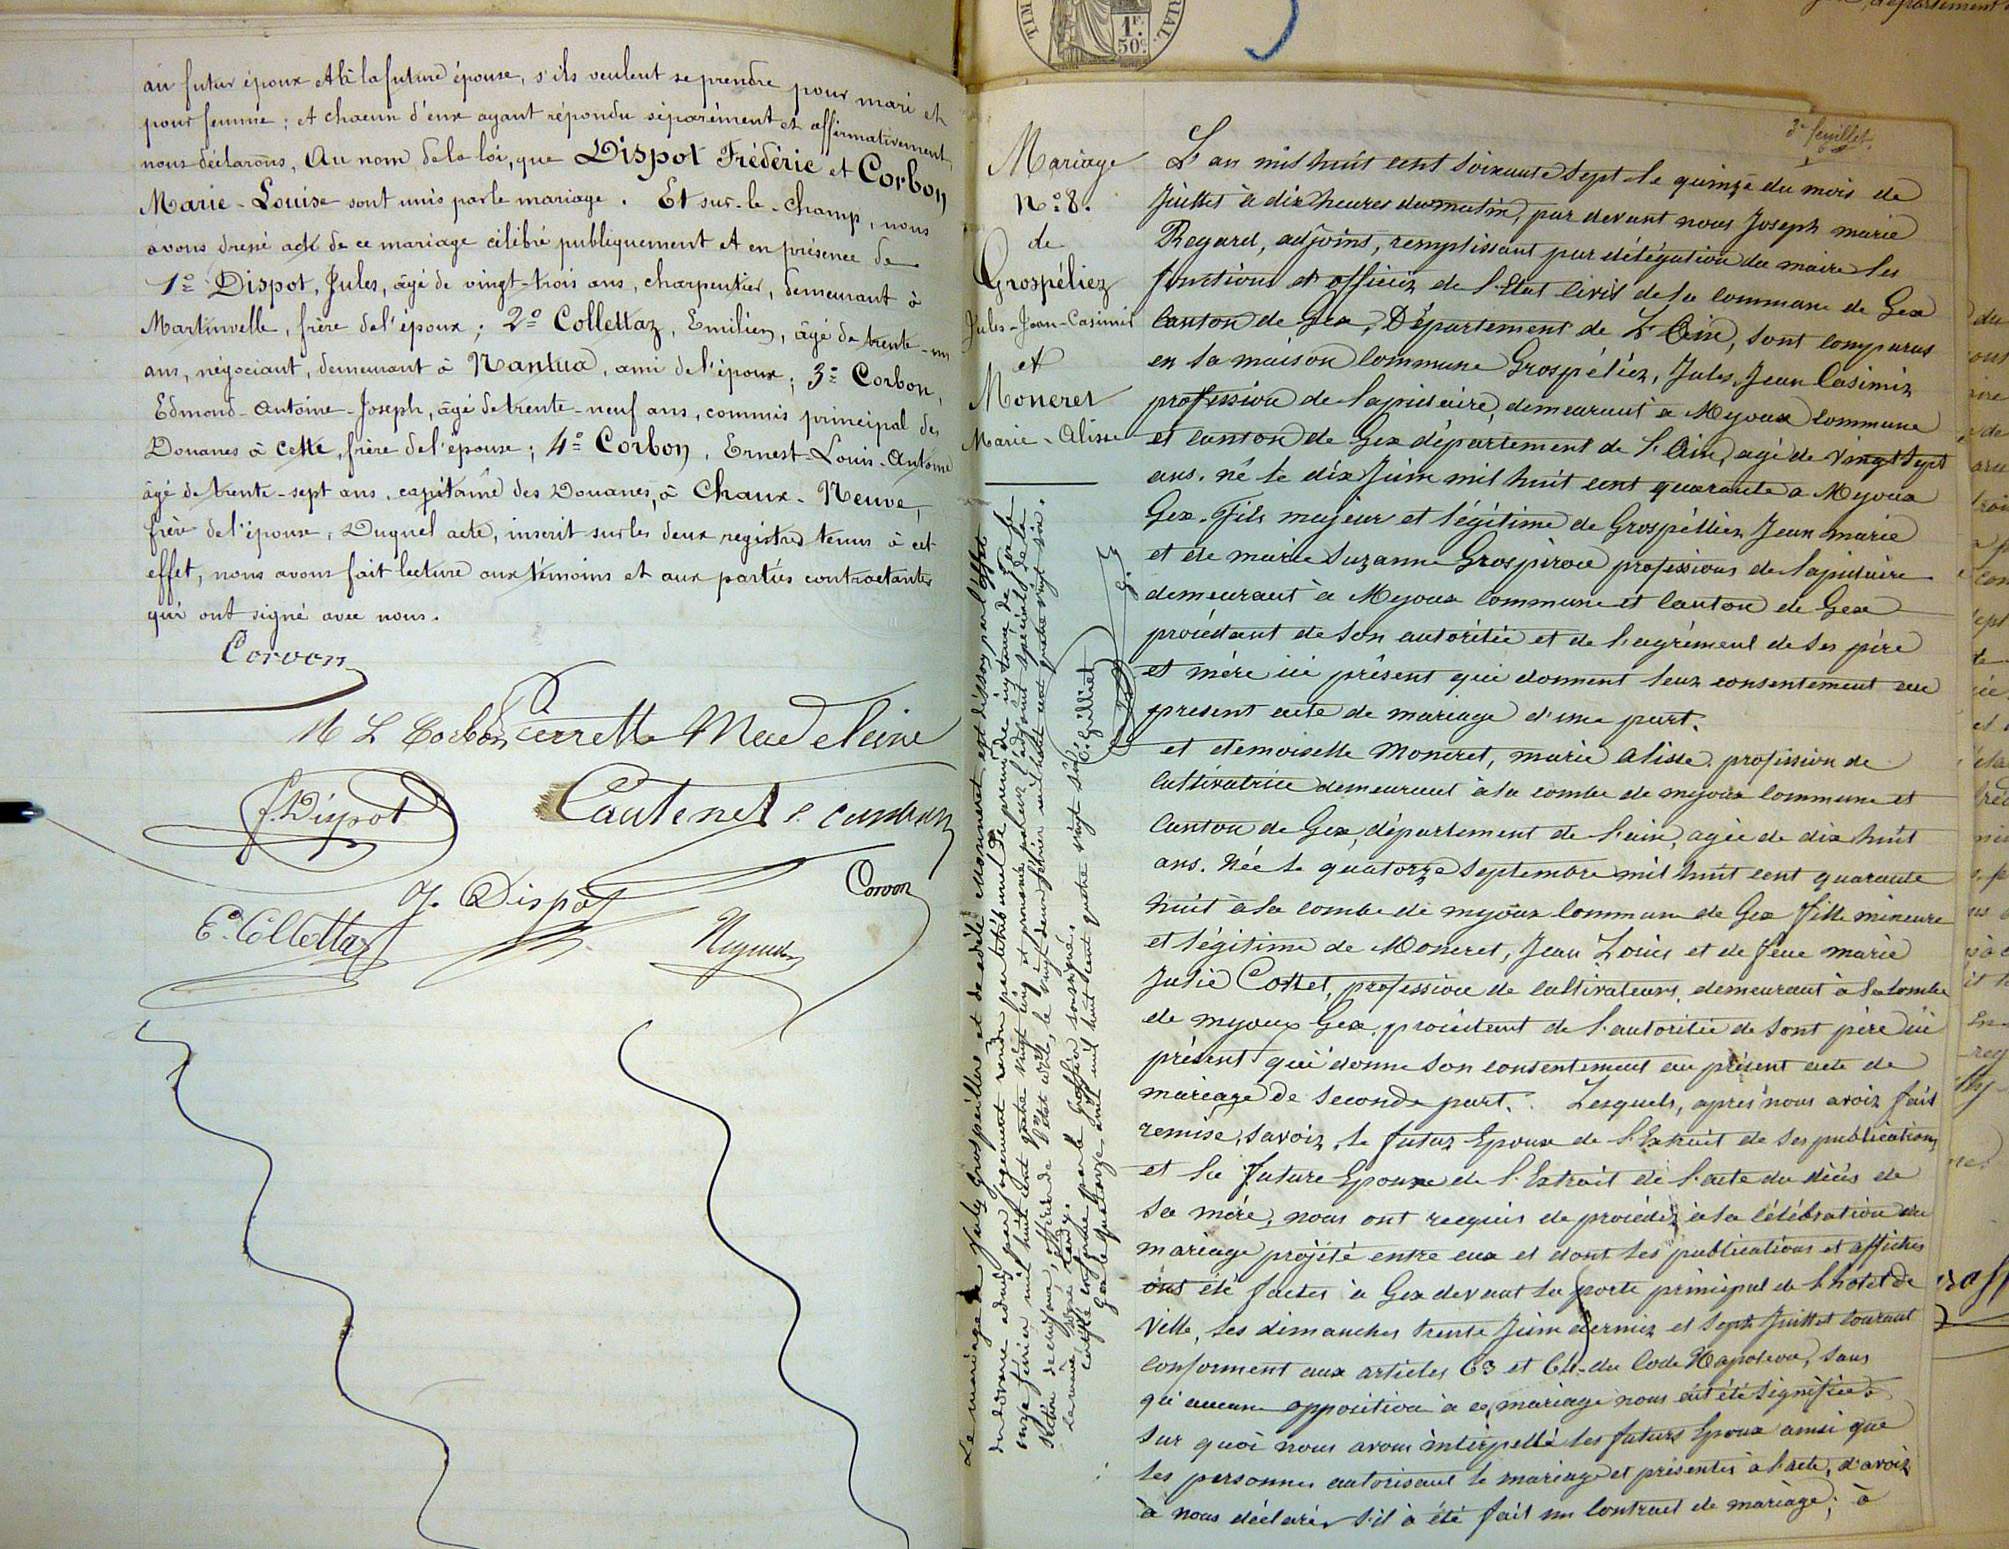 au futur époux et à la future épouse, s'ils veulent se prendre pour mari et
pour femme ; et chacun d'eux ayant répondu séparément et affirmativement,
nous déclarons, au nom de la loi, que Dispot Frédéric et Corbon
Marie-Louise sont unis par le mariage. Et sur-le-champ, nous
avons dressé acte de ce mariage célébré publiquement et en présence de
1º Dispot, Jules, âgé de vingt-trois ans, charpentier, demeurant à
Martinvelle, frère de l'époux ; 2º Collettaz, Emilien, âgé de trente-un
ans, négociant, demeurant à Nantua, ami de l'époux ; 3º Corbon,
Edmond-Antoine-Joseph, âgé de trente-neuf ans, commis principal des
Douanes à Cette, frère de l'épouse ; 4º Corbon, Ernest-Louis-Antoine
âgé de trente-sept ans, capitaine des Douanes, à Chaux-Neuve,
frère de l'épouse, Duquel acte, inscrit sur les deux registres tenus à cet
effet, nous avons fait lecture aux témoins et aux parties contractantes
qui ont signé avec nous.
Corbon
M L Corbon Perrette Madeleine
f. Dispot
Cautenet
J. Dispot
Corbon
E. Collettaz
1F.
50c
3e feuillet
Mariage
Nº 8.
de
Grospéliez
Jules-Jean-Casimir
et
Moneret
Marie-Alisse
L'an mil huit cent soixante sept le quinze du mois de
Juillet à dix heures du matin, par devant nous Joseph marie
Regard, adjoins, remplissant par délégation du maire les
fonctions d'officier de l'Etat civil de la commune de Gex
canton de Gex, Département de L'Ain, sont comparus
en la maison commune Grospéliez, Jules Jean Casimir
profession de lapidaire, demeurant à Mijoux commune
et canton de Gex département de l'Ain, agé de vingt sept
ans. né le dix Juin mil huit cent quarante a Mijoux
Gex. Fils majeur et légitime de Grospélliez Jean marie
et de marie Suzanne Grospiron professions de lapidaire
demeurant à Mejoux commune et canton de Gex
procédant de son autoritée et de l'agrément de ses père
et mère ici présent qui donnent leur consentement au
present acte de mariage d'une part.
et demoiselle Moneret, marie alisse. profession de
cultivatrice demeurant à la combe de mijoux commune et
canton de Gex, département de l'ain, agée de dix huit
ans. Née le quatorze Septembre mil huit cent quarante
huit à la combe de mijoux commune de Gex fille mineure
et légitime de Moneret, Jean Louis et de feue marie
Julie Cottet, profession de cultivateurs, demeurant à la Combe
de mijoux Gex. procédant de l'autoritée de sont père ici
présent qui donne son consentement au présent acte de
mariage de seconde part. Lesquels, après nous avoir fait
remise, savoir, le futur Epoux de l'Extrait de ses publications
et la future Epouse de l'Extrait de l'acte du décès de
sa mère, nous ont requis de procéder à la célébration du
mariage projeté entre eux et dont les publications et affiches
ont été faites à Gex devant la porte principal de l'hotel de
Ville, les dimanches trente Juin dernier et sept Juillet courant
conforment aux articles 63 et 64 du Code Napoléon, sans
qu'aucune opposition à ce mariage nous eut été signifiée
Sur quoi nous avons interpellé les futurs Epoux ainsi que
les personnes autorisant le mariage et présentes à l'acte, d'avoir
à nous déclarer s'il à été fait un contrat de mariage ; à
Le mariage de Jules Grospeillier et de adèle Monneret est dissous par l'effet
du divorce admis par jugement rendu par le tribunal de première instance de Gex le
onze février mil huit cent quatre vingt cinq et prononcé par l'adjoint spécial de la
section de Mijoux, officier de l'état civil, le vingt deux février mil huit cent quatre vingt six.
Certifié conforme par le Greffier soussigné,
Gex le quatorze avril mil huit cent quatre vingt six.